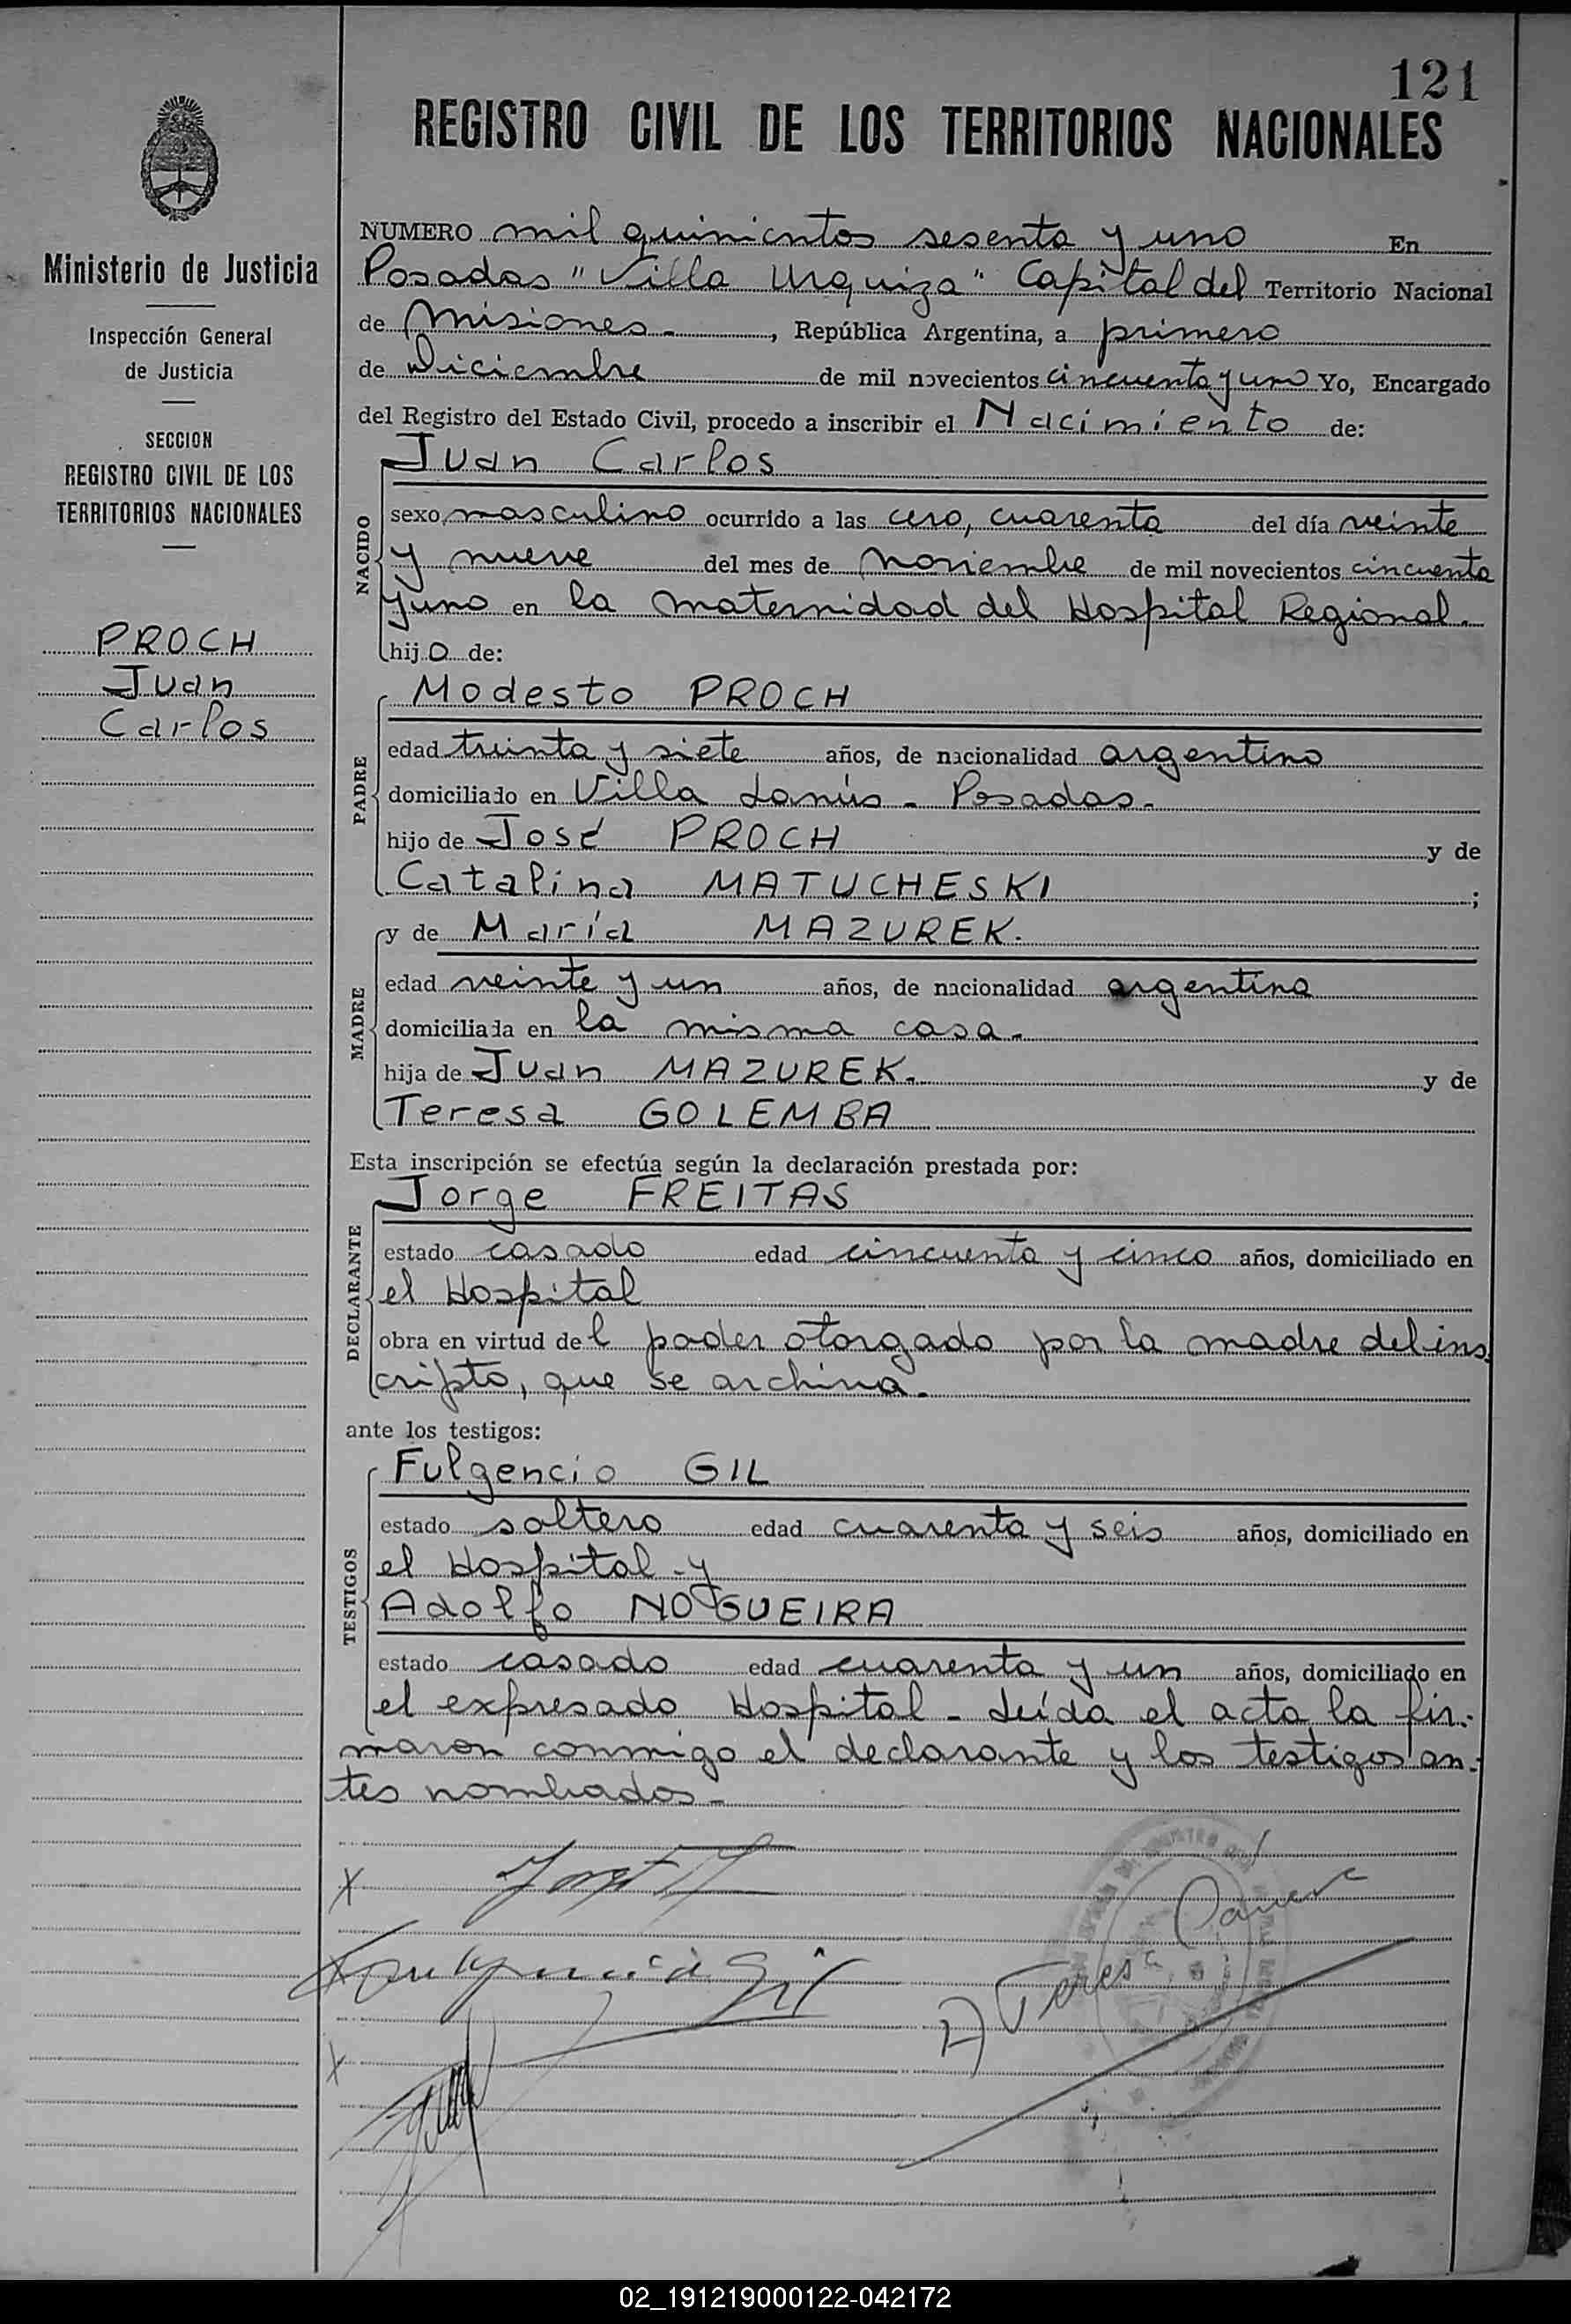 121
REGISTRO CIVIL DE LOS TERRITORIOS NACIONALES
Ministerio de Justicia
Inspección General
de Justicia
SECCION
REGISTRO CIVIL DE LOS
TERRITORIOS NACIONALES
PROCH
Juan
Carlos
NUMERO mil quinientos sesenta y uno En
Posadas "Villa Urquiza" Capital del Territorio Nacional
de Misiones.-, República Argentina, a primero
de Diciembre de mil novecientos cincuenta y uno Yo, Encargado
del Registro del Estado Civil, procedo a inscribir el Nacimiento de:
NACIDO
Juan Carlos
sexo masculino ocurrido a las cero, cuarenta del día veinte
y nueve del mes de Noviembre de mil novecientos cincuenta
y uno en la maternidad del Hospital Regional.-
hijo de:
PADRE
Modesto PROCH
edad treinta y siete años, de nacionalidad argentino
domiciliado en Villa Lanús - Posadas.-
hijo de José PROCH y de
Catalina MATUCHESKI ;
MADRE
y de María MAZUREK.
edad veinte y un años, de nacionalidad argentina
domiciliada en la misma casa.-
hija de Juan MAZUREK. y de
Teresa GOLEMBA
Esta inscripción se efectúa según la declaración prestada por:
DECLARANTE
Jorge FREITAS
estado casado edad cincuenta y cinco años, domiciliado en
el Hospital
obra en virtud del poder otorgado por la madre del ins-
cripto, que se archiva.-
ante los testigos:
TESTIGOS
Fulgencio GIL
estado soltero edad cuarenta y seis años, domiciliado en
el Hospital - y
Adolfo NOGUEIRA
estado casado edad cuarenta y un años, domiciliado en
el expresado Hospital - Leída el acta la fir-
maron conmigo el declarante y los testigos an-
tes nombrados.-
X
Fulgencio Gil
X
02_191219000122-042172